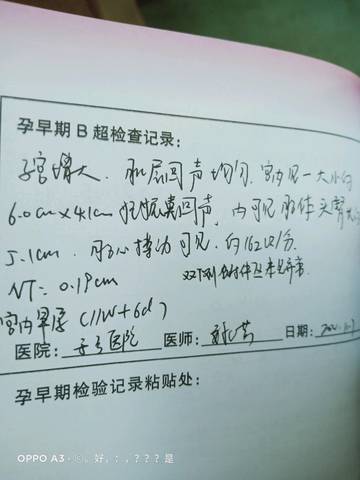 孕早期 B 超检查记录：
子宫增大，肌层回声均匀，宫内见一大小约
6.0cm×4.1cm妊娠囊回声，内可见胎体 头臀
5.1cm，胎心搏动可见，约162次/分
NT：0.19cm 双侧附件区未见异常
宫内早孕（11W+6d）
医院： 医院 医师： 日期：
孕早期检验记录粘贴处：
OPPO A3 — 好，：，？？？？是